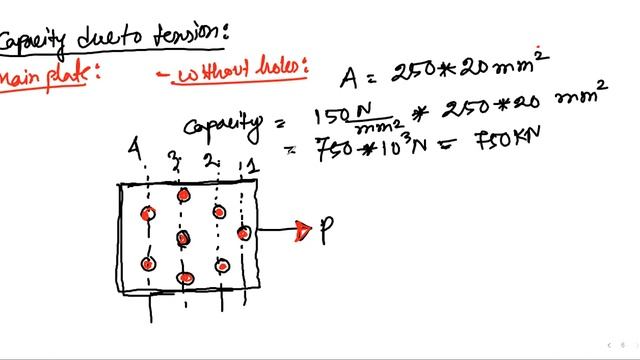 Capacity due to tension:
Main plate: - without holes:
A = 250*20 mm²
Capacity = 150 N/mm² * 250*20 mm²
= 750*10³N = 750KN
4 3 2 1
P
6